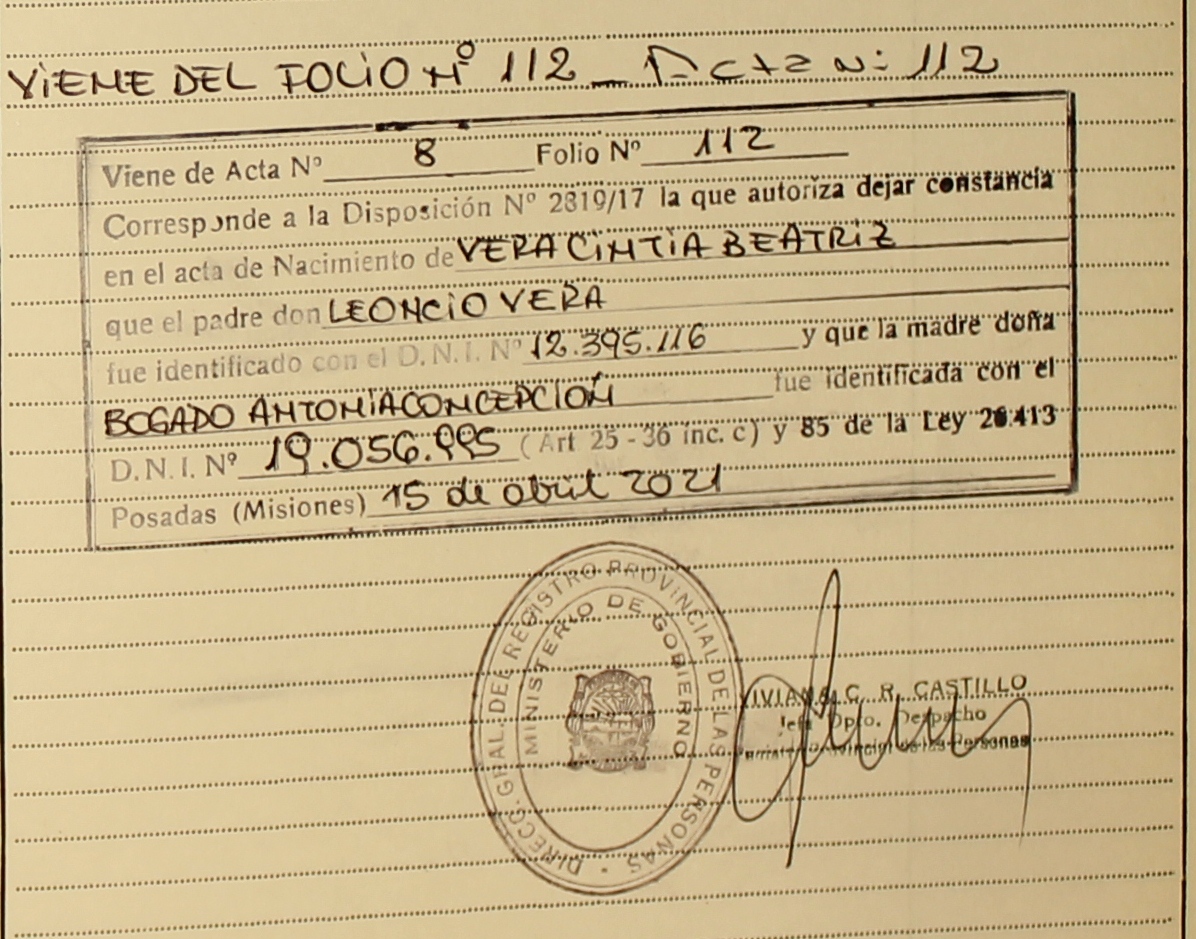 VIENE DEL FOLIO Nº 112 _ Acta N: 112
Viene de Acta Nº 8 Folio Nº 112
Corresponde a la Disposición Nº 2819/17 la que autoriza dejar constancia
en el acta de Nacimiento de VERA CINTIA BEATRIZ
que el padre don LEONCIO VERA
fue identificado con el D.N.I. Nº 12.395.116 y que la madre doña
BOGADO ANTONIA CONCEPCIÓN fue identificada con el
D.N.I. Nº 19.056.995 (Art 25 - 36 inc. c) y 85 de la Ley 26.413
Posadas (Misiones) 15 de abril 2021
DIRECC. GRAL. DEL REGISTRO PROVINCIAL DE LAS PERSONAS
MINISTERIO DE GOBIERNO
VIVIANA C. R. CASTILLO
Jefa Dpto. Despacho
Provincial de las Personas